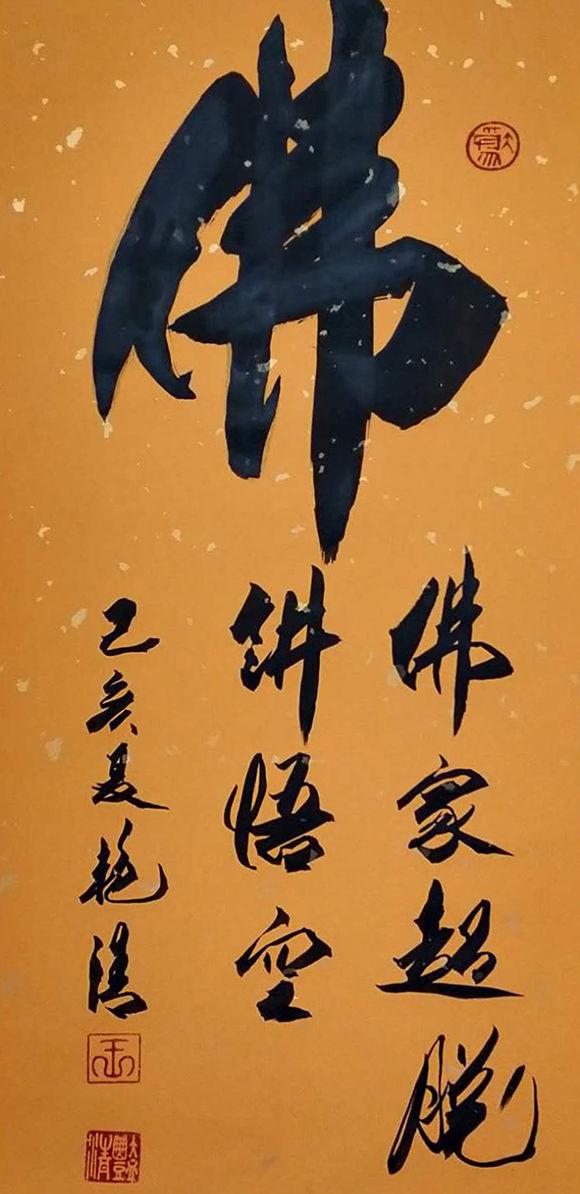 佛
佛家超脱
讲悟空
己亥夏艳清